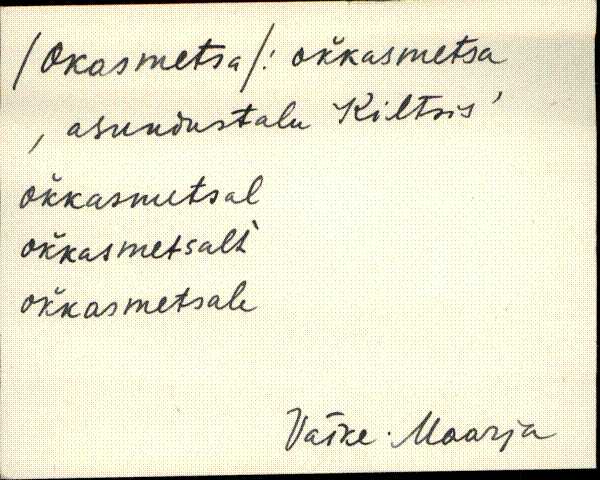 /Okasmetsa/: oǩkasmetsa
, asundustalu Kiltsis'
oǩkasmetsal
oǩkasmetsalt̀
oǩkasmetsale
Väike-Maarja